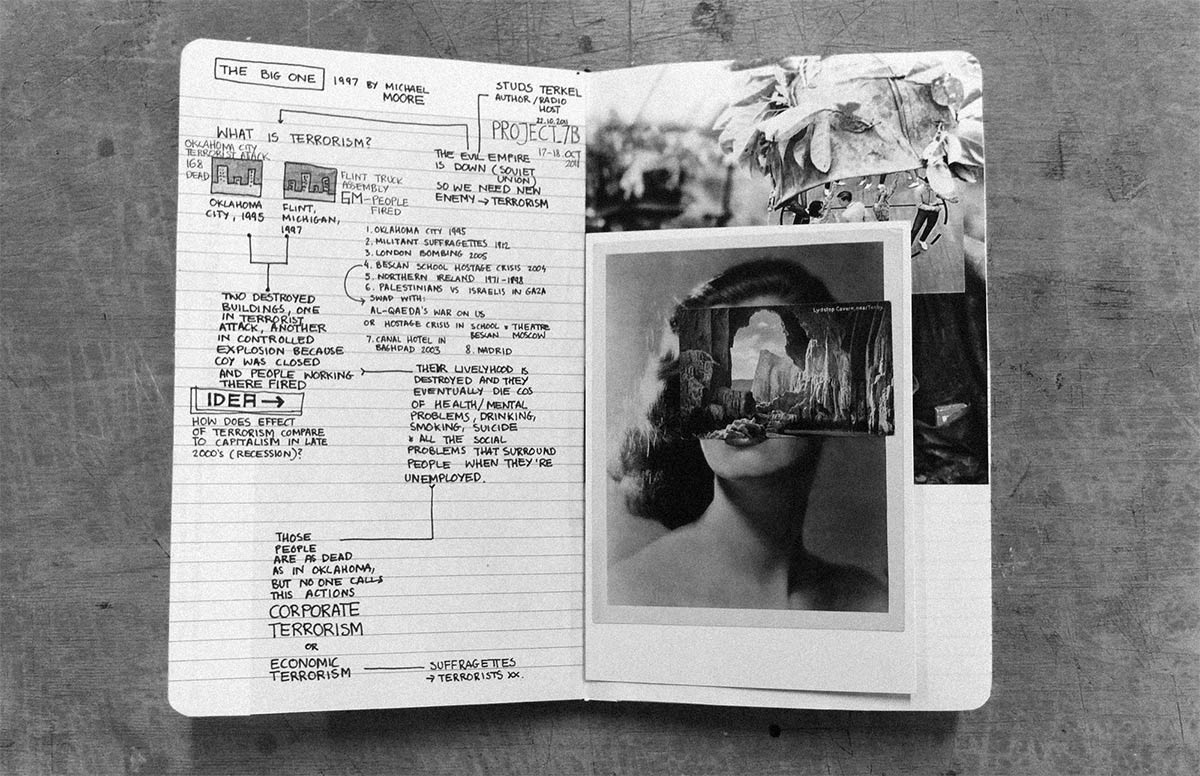 THE BIG ONE 1997 BY MICHAEL
MOORE
STUDS TERKEL
AUTHOR/RADIO
HOST
22.10.2011
PROJECT.7B
17-18.OCT
2011
WHAT IS TERRORISM?
THE EVIL EMPIRE
IS DOWN (SOVIET
UNION)
SO WE NEED NEW
ENEMY → TERRORISM
OKLAHOMA CITY
TERRORIST ATTACK
168
DEAD
OKLAHOMA
CITY, 1995
FLINT TRUCK
ASSEMBLY
GM-PEOPLE
FIRED
FLINT,
MICHIGAN,
1997
1. OKLAHOMA CITY 1995
2. MILITANT SUFFRAGETTES 1912
3. LONDON BOMBING 2005
4. BESLAN SCHOOL HOSTAGE CRISIS 2004
5. NORTHERN IRELAND 1971-1998
6. PALESTINIANS VS ISRAELIS IN GAZA
SWAP WITH:
AL-QAEDA'S WAR ON US
OR HOSTAGE CRISIS IN SCHOOL & THEATRE
BESLAN MOSCOW
7. CANAL HOTEL IN
BAGHDAD 2003 8. MADRID
TWO DESTROYED
BUILDINGS, ONE
IN TERRORIST
ATTACK, ANOTHER
IN CONTROLLED
EXPLOSION BECAUSE
COY WAS CLOSED
AND PEOPLE WORKING
THERE FIRED
IDEA →
HOW DOES EFFECT
OF TERRORISM COMPARE
TO CAPITALISM IN LATE
2000'S (RECESSION)?
THEIR LIVELYHOOD IS
DESTROYED AND THEY
EVENTUALLY DIE COS
OF HEALTH/MENTAL
PROBLEMS, DRINKING,
SMOKING, SUICIDE
& ALL THE SOCIAL
PROBLEMS THAT SURROUND
PEOPLE WHEN THEY'RE
UNEMPLOYED.
THOSE
PEOPLE
ARE AS DEAD
AS IN OKLAHOMA,
BUT NO ONE CALLS
THIS ACTIONS
CORPORATE
TERRORISM
OR
ECONOMIC
TERRORISM
SUFFRAGETTES
→ TERRORISTS XX.
Lydstep Cavern, near Tenby.